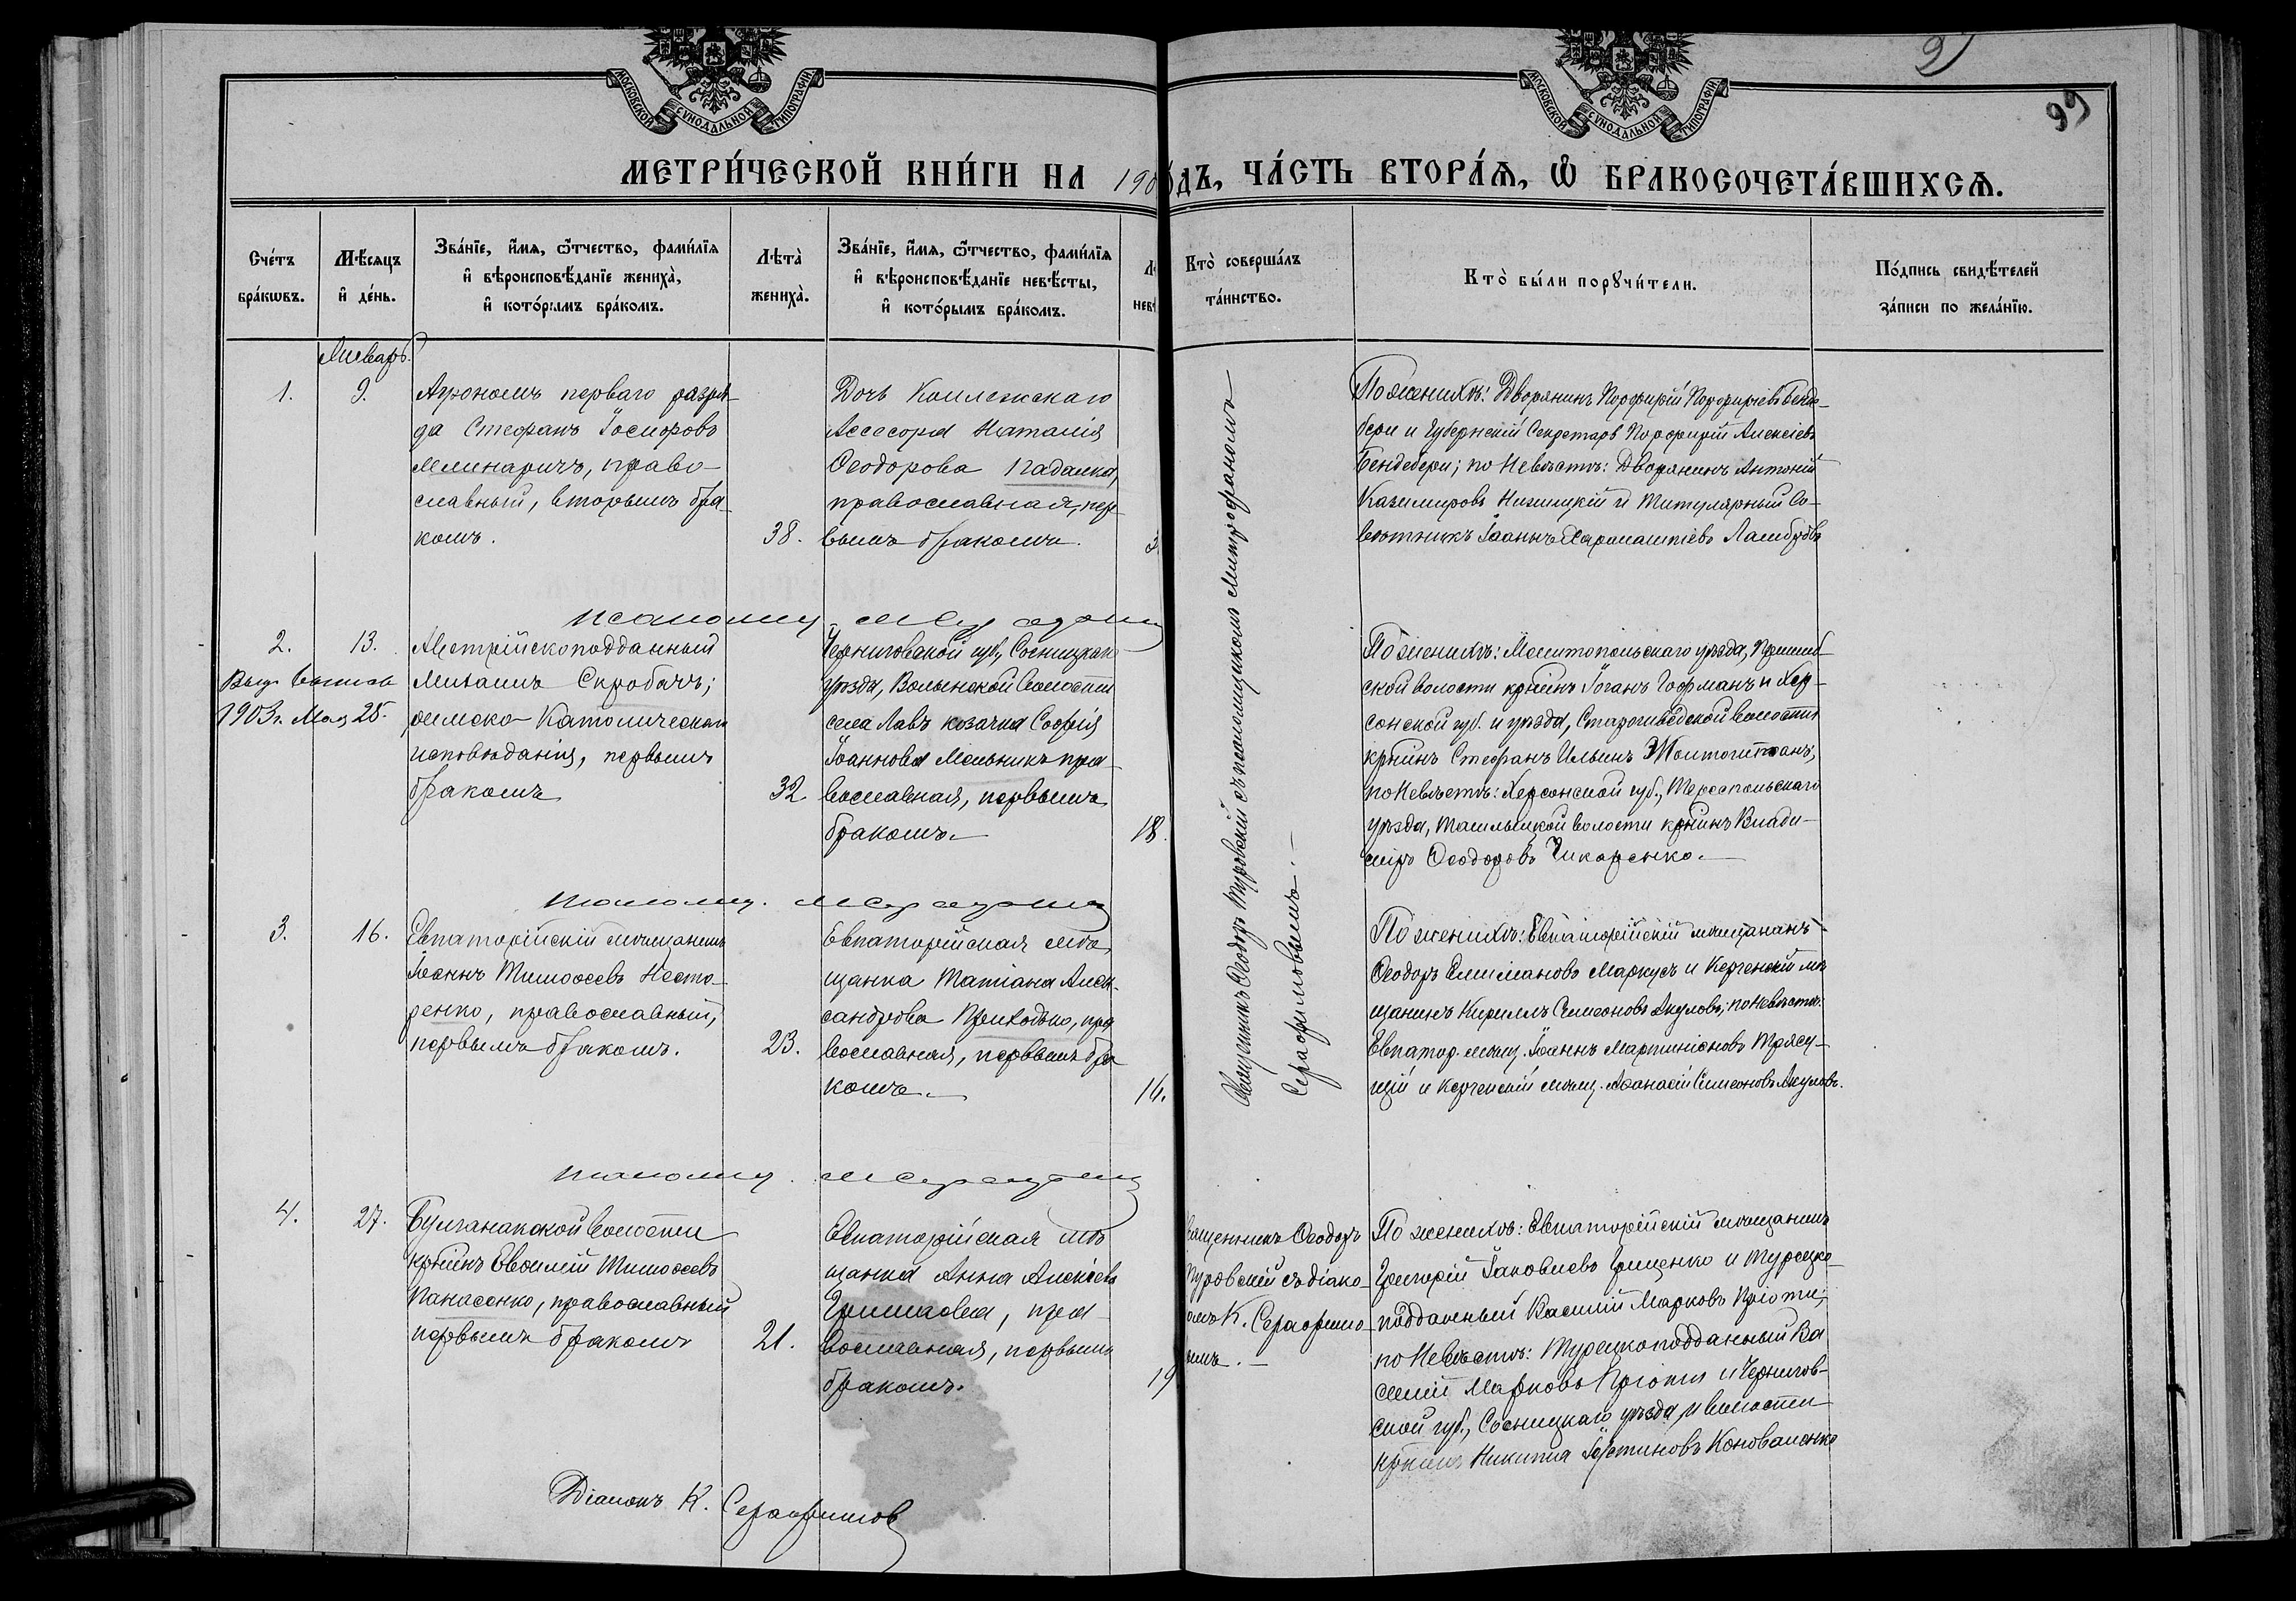 МОСКОВСКОЙ СѴНОДАЛЬНОЙ ТИПОГРАФІИ
МОСКОВСКОЙ СѴНОДАЛЬНОЙ ТИПОГРАФІИ
9
99
МЕТРИ́ЧЕСКОЙ КНИ́ГИ НА 190
ДЪ, ЧА́СТЬ ВТОРА́Ѧ, Ѽ БРАКОСОЧЕТА́ВШИХСѦ.
Сче́тъ
бра́кѡвъ.
Мѣ́сѧцъ
и҆ де́нь.
Зва́нїе, и҆́мѧ, ѻ҆́тчество, фамѝлїѧ
и҆ вѣроисповѣ́данїе жениха̀,
и҆ кото́рымъ бра́комъ.
Лѣта̀
жениха̀.
Зва́нїе, и҆́мѧ, ѻ҆́тчество, фамѝлїѧ
и҆ вѣроисповѣ́данїе невѣ́сты,
и҆ кото́рымъ бра́комъ.
Л
невѣ
Кто̀ соверша́лъ
та́инство.
Кто̀ бы́ли порꙋчи́тели.
По́дпись свидѣ́телей
за́писи по жела́нїю.
Январь.
1.
9.
Агрономъ перваго разря-
да Стефанъ Іосифовъ
Млинаричъ, право-
славный, вторымъ бра-
комъ.
38.
Дочь Коллежскаго
Ассесора Наталія
Ѳеодорова Падалка,
православная, пер-
вымъ бракомъ.
3
По женихѣ: Дворянинъ Порфирій Порфиріевъ Бенде-
бери и Губернскій Секретарь Порфирій Алексіевъ
Бендебери; по Невѣстѣ: Дворянинъ Антоній
Казимировъ и Титулярный Со-
вѣтникъ Іоаннъ Харлампіевъ Ламбровъ
Священникъ Ѳеодоръ Туровскій съ псаломщикомъ Митрофаномъ
Серафимовымъ.
2.
13.
Выд. выпись
1903 г. Мая 25.
Австрійскоподданный
Михаилъ Скробачъ;
римско-Католическаго
исповѣданія, первымъ
бракомъ
32
Черниговской губ., Сосницкаго
уѣзда, Волынской волости
села Лавъ козачка Софія
Іоаннова Мельникъ пра-
вославная, первымъ
бракомъ.
18.
По женихѣ: Мелитопольскаго уѣзда, Пришиб-
ской волости кр҃нинъ Іоганъ Гофманъ и Хер-
сонской губ. и уѣзда, Старошведской волости
кр҃нинъ Стефанъ Ильинъ
по Невѣстѣ: Херсонской губ., Тираспольскаго
уѣзда, волости кр҃нинъ Влади-
міръ Ѳеодоровъ Чикаренко.
3.
16.
Евпаторійскій мѣщанинъ
Іоаннъ Тимоѳеевъ Несте-
ренко, православный,
первымъ бракомъ.
23.
Евпаторійская мѣ-
щанка Татіана Алек-
сандрова Приходько, пра
вославная, первымъ бра
комъ.
16.
По женихѣ: Евпаторійскій мѣщанинъ
Ѳеодоръ Маркусъ и Керченскій мѣ
щанинъ Кириллъ Симеоновъ Акуловъ; по Невѣстѣ:
Евпатор. мѣщ. Іоаннъ Мартиніановъ Трясу-
щій и Керченскій мѣщ. Аѳанасій Симеоновъ Акуловъ.
4.
27.
Булганакской волости
кр҃нинъ Евѳимій Тимоѳеевъ
Панасенко, православный
первымъ бракомъ
21.
Евпаторійская мѣ
щанка Анна Алексіева
Гришкова, пра-
вославная, первымъ
бракомъ.
19
вященникъ Ѳеодоръ
Туровскій съ діако-
омъ К. Серафимо
ымъ.
По женихѣ: Евпаторійскій мѣщанинъ
Григорій Іаковлевъ Гриценко и Турецко-
подданный Василій Марковъ Кріоти;
по Невѣстѣ: Турецкоподданный Ва
силій Марковъ Кріоти и Чернигов-
ской губ., Сосницкаго уѣзда и волости
кр҃нинъ Никита Іустиновъ Коноваленко
Діаконъ К. Серафимов